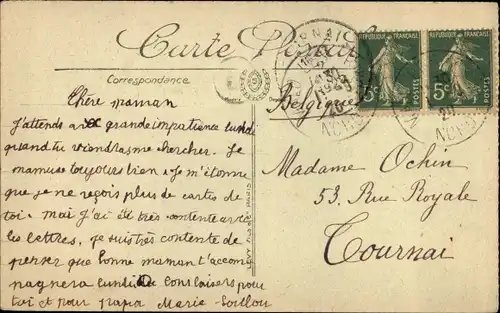 Carte Postale
Correspondance
Chère maman
J'attends avec grande impatience lundi
quand tu viendras me chercher. Je
m'amuse toujours bien. Je m'étonne
que je ne reçois plus de cartes de
toi. mai J'ai été très contente avec
les lettres. Je suis très contente de
penser que bonne maman t'accom
pagnera lundi.
toi et pour papa Marie-
Belgique
REPUBLIQUE FRANÇAISE
5c POSTES
REPUBLIQUE FRANÇAISE
5c POSTES
NORD
Madame Ochin
53, Rue Royale
Tournai